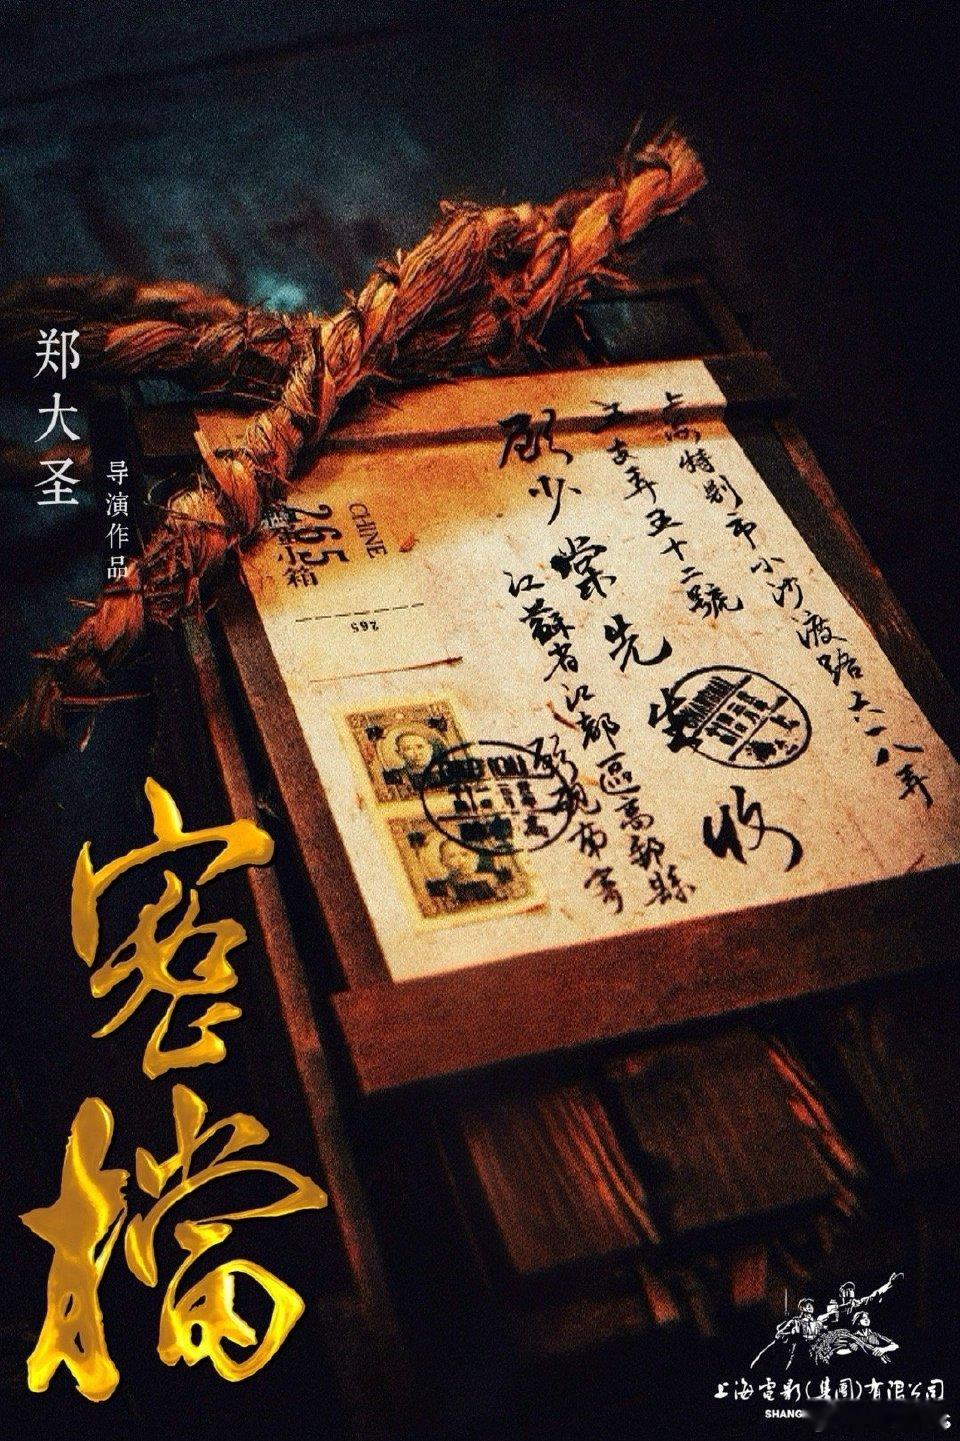 郑大圣
导演作品
上海特别市小沙渡路六一八弄
五十二號
顾少棠先生收
江蘇省江都區高郵縣
寄
CHINE
265
小箱
265
SHANGHAI
密檔
上海電影(集團)有限公司
SHANG